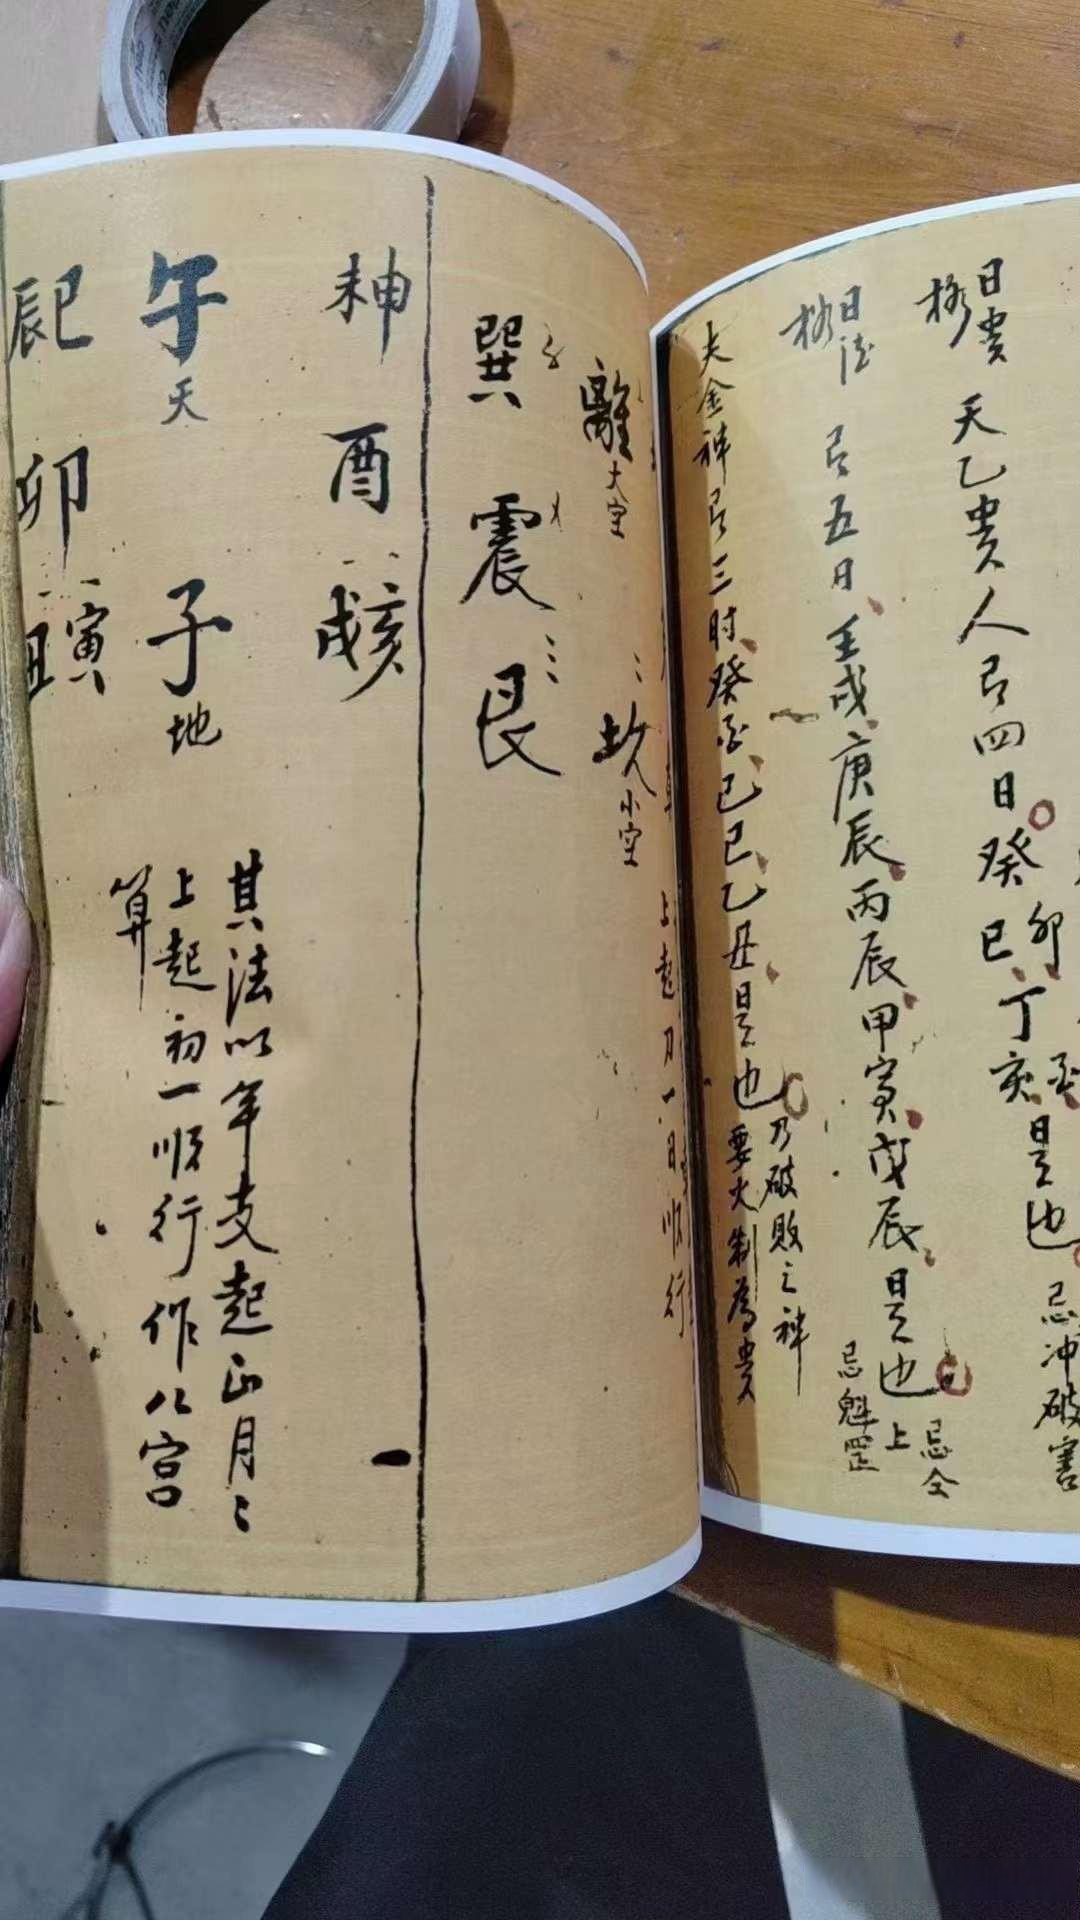 日贵格
天乙贵人吕四日癸卯癸巳丁酉丁亥是也
忌冲破害
日德格
吕五日壬戌庚辰丙辰甲寅戊辰是也
忌魁罡
上忌全
夫金神吕三时癸酉己巳乙丑是也
乃破败之神
要火制为贵
離大空
坎小空
上起初一日顺行
巽
震
艮
未申
酉
戌亥
午天
子地
其法以年支起正月〻
上起初一顺行作八宫
算
辰巳
卯
丑寅